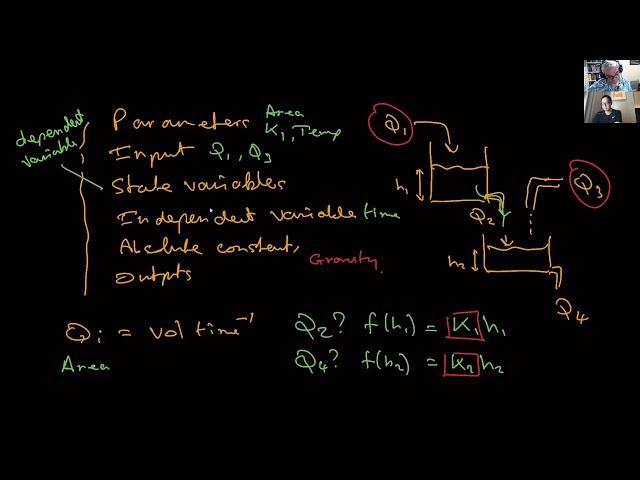 dependent
variable
Parameters
Area
K1, Temp
Input Q1, Q3
State variables
Independent variable time
Absolute constants
Gravity
Outputs
Q1
h1
Q2
Q3
h2
Q4
Qi = vol time⁻¹
Area
Q2? f(h1) = K1 h1
Q4? f(h2) = K2 h2